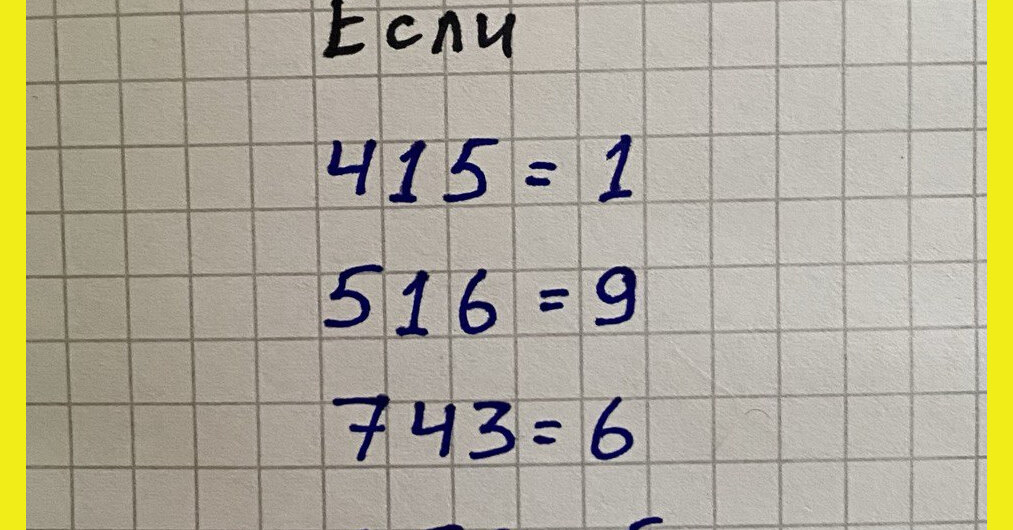 Если
415 = 1
516 = 9
743 = 6